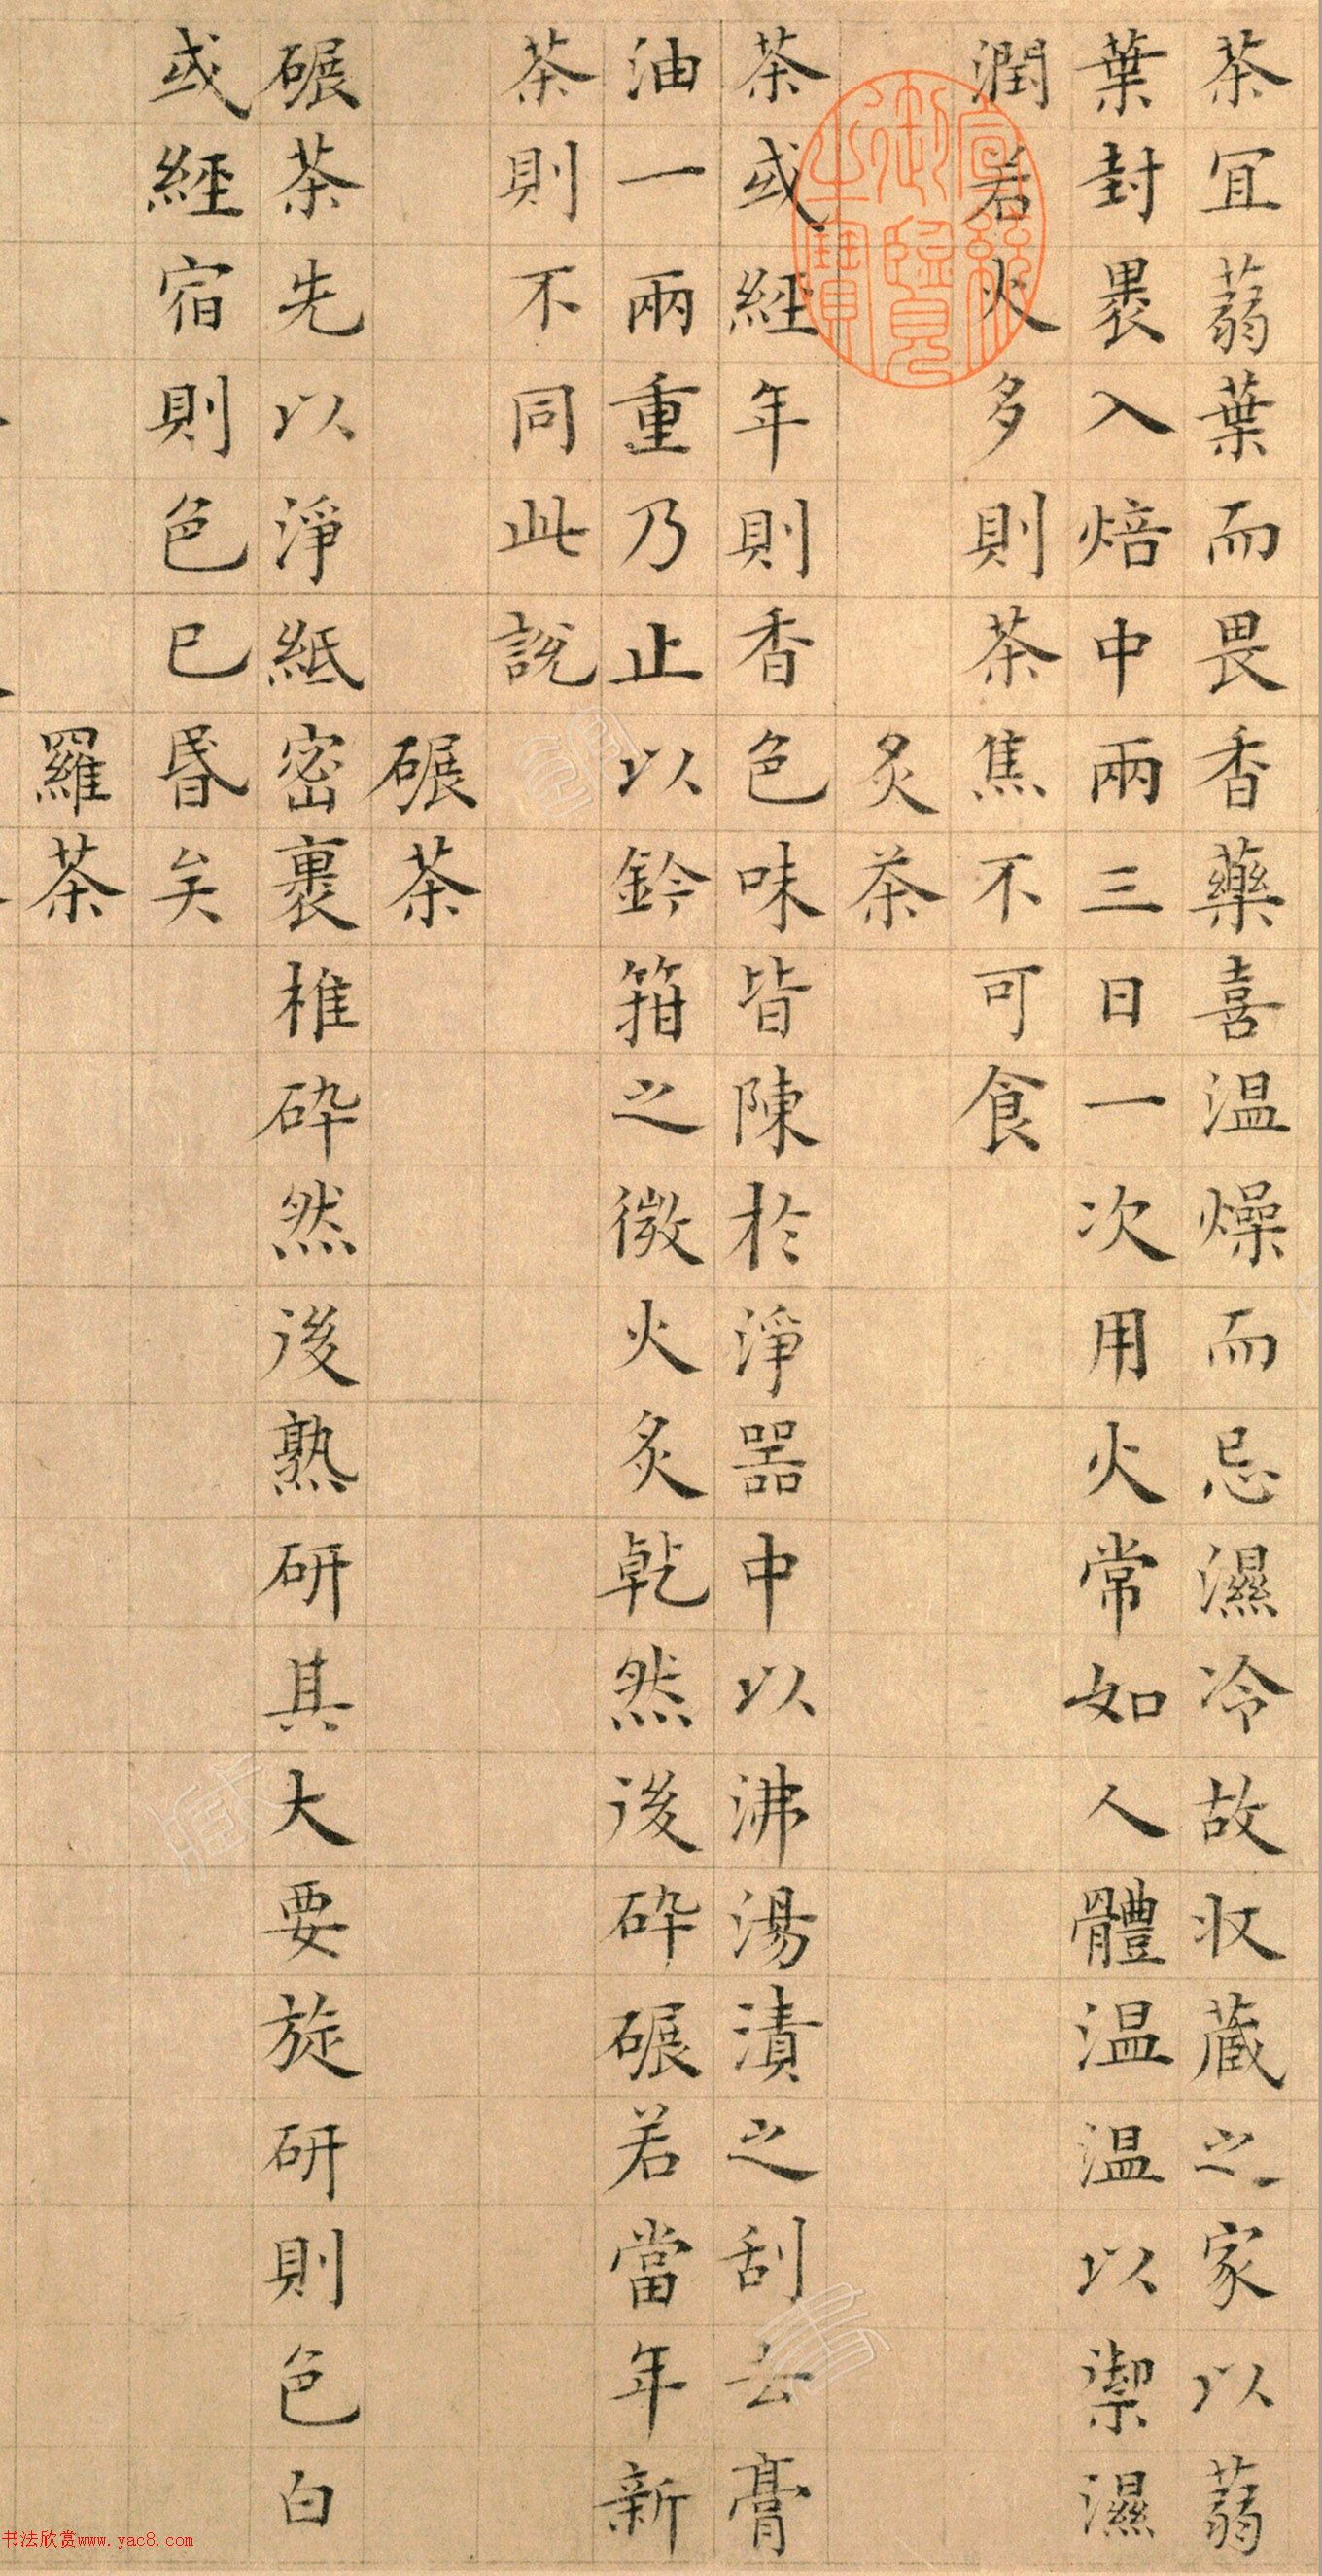 茶宜蒻葉而畏香藥喜温燥而忌濕冷故收藏之家以蒻
葉封裹入焙中兩三日一次用火常如人體温温以禦濕
潤若火多則茶焦不可食
炙茶
茶或經年則香色味皆陳於淨器中以沸湯漬之刮去膏
油一兩重乃止以鈐箝之微火炙乾然後碎碾若當年新
茶則不同此說
碾茶
碾茶先以淨紙密裹椎碎然後熟研其大要旋研則色白
或經宿則色已昏矣
羅茶
宣統御覽之寶
书法欣赏www.yac8.com